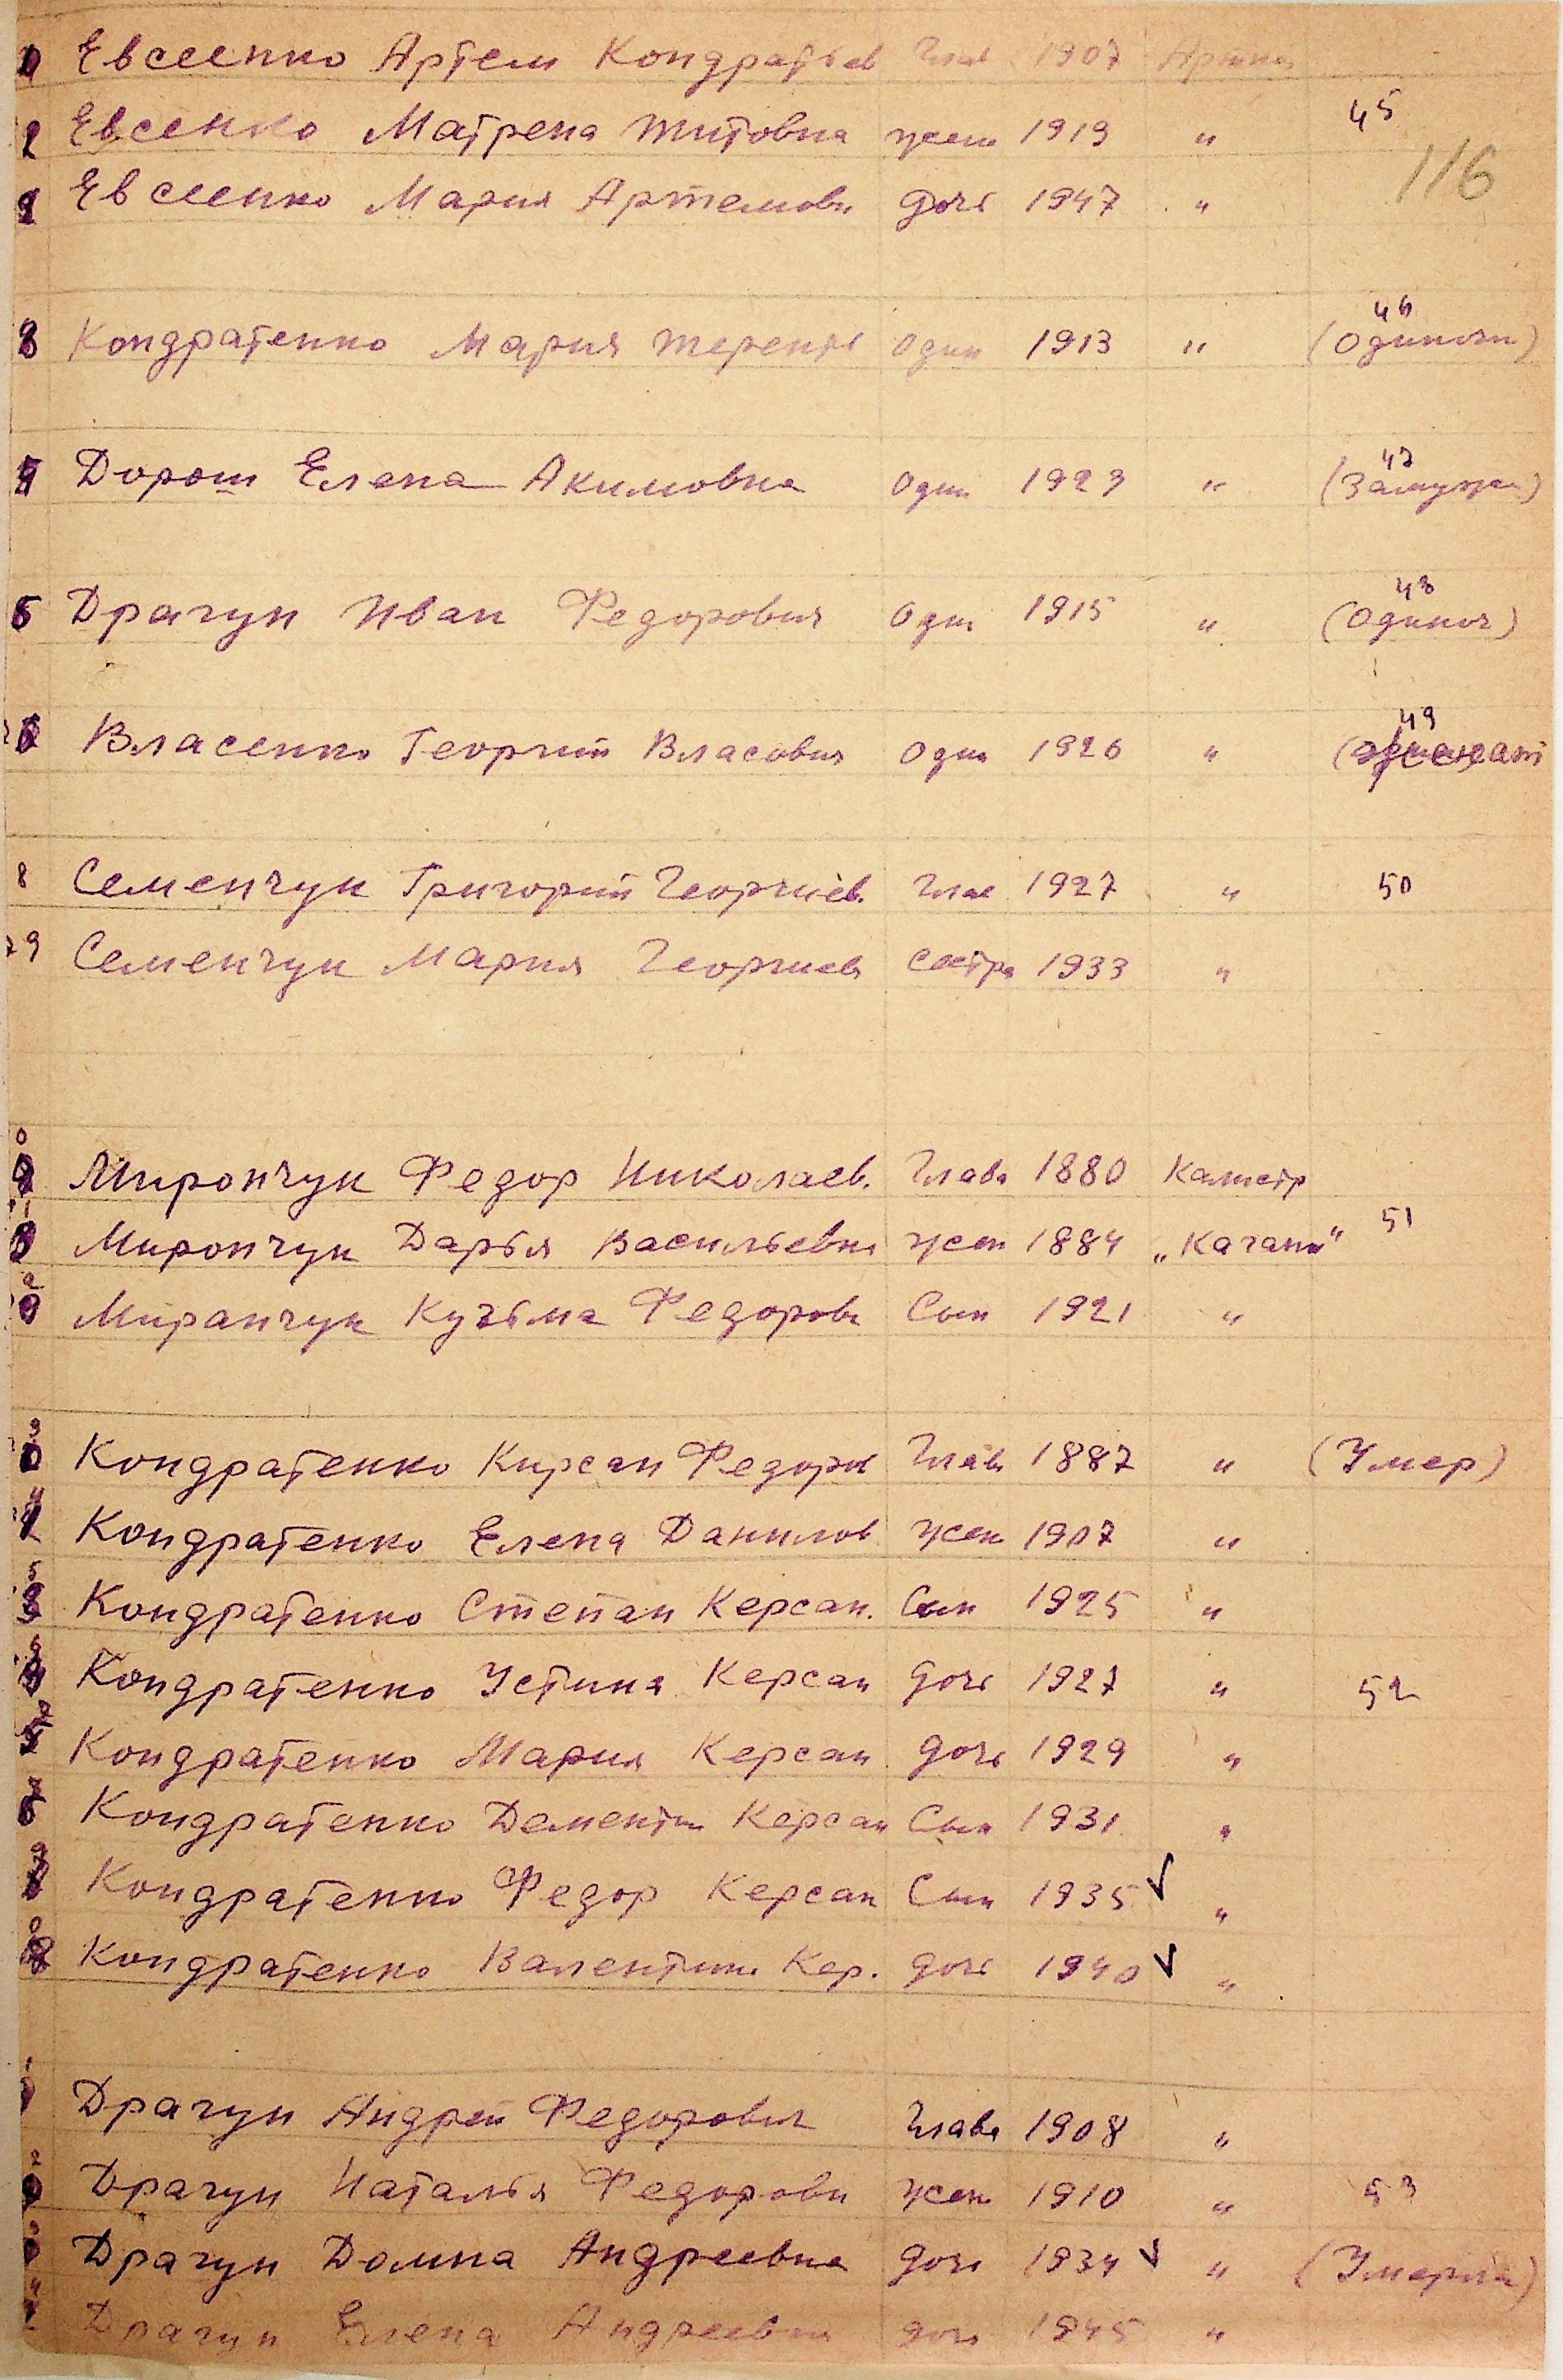 Евсеенко Артем Кондратьев Глав 1907 Артель
2 Евсенко Матрена Титовна жена 1919 "
45
116
Евсеенко Мария Артемовн дочь 1947 "
46
Кондратенко Мария Терентьев Один 1913 " (Одиночка)
47
Дорош Елена Акимовна Один 1923 " (Замужем)
48
5 Драгун Иван Федорович Один 1915 " (Одиноч)
49
Власенко Георгий Власович Один 1926 "
8 Семенчук Григорий Георгиев. Глав 1927 " 50
9 Семенчук Мария Георгиев Сестра 1933 "
0
Мирончук Федор Николаев. Глава 1880 Камстр
1 Мирончук Дарья Васильевна жен 1884 "Каганк" 51
2
Миранчук Кузьма Федоров Сын 1921 "
3
Кондратенко Кирсан Федоров Глав 1887 " (Умер)
4
Кондратенко Елена Данилов жен 1907 "
5
Кондратенко Степан Керсан. Сын 1925 "
6
Кондратенко Устина Керсан дочь 1927 " 52
7
Кондратенко Мария Керсан дочь 1929 "
8
Кондратенко Дементи Керсан Сын 1931 "
9
Кондратенко Федор Керсан Сын 1935 ✓ "
0
Кондратенко Валентина Кер. дочь 1940 ✓ "
1
Драгун Андрей Федорович Глава 1908 "
2
Драгун Наталья Федоровн жен 1910 " 53
3
Драгун Домна Андреевна дочь 1934 ✓ " (Умерла)
4
Драгун Елена Андреевна дочь 1945 "